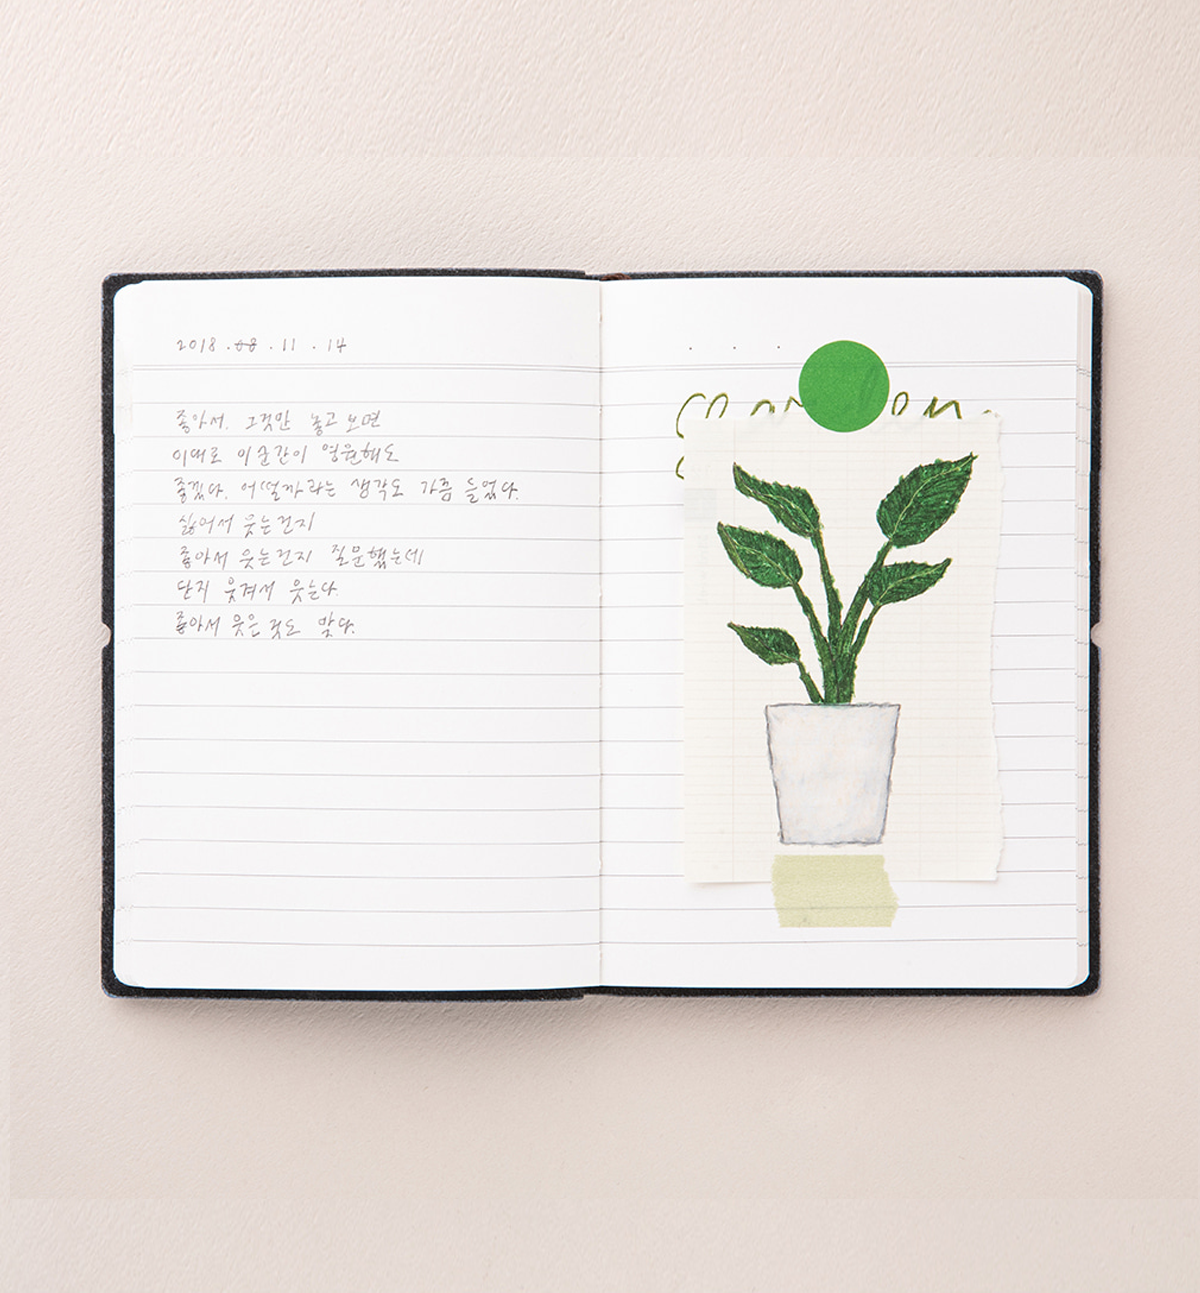 2018 . 08 . 11 . 14
좋아서. 그것만 놓고 보면
이대로 이 순간이 영원해도
좋겠다. 어떨까라는 생각도 가끔 들었다.
싫어서 웃는건지
좋아서 웃는건지 질문했는데
단지 웃겨서 웃는다.
좋아서 웃은 것도 맞다.